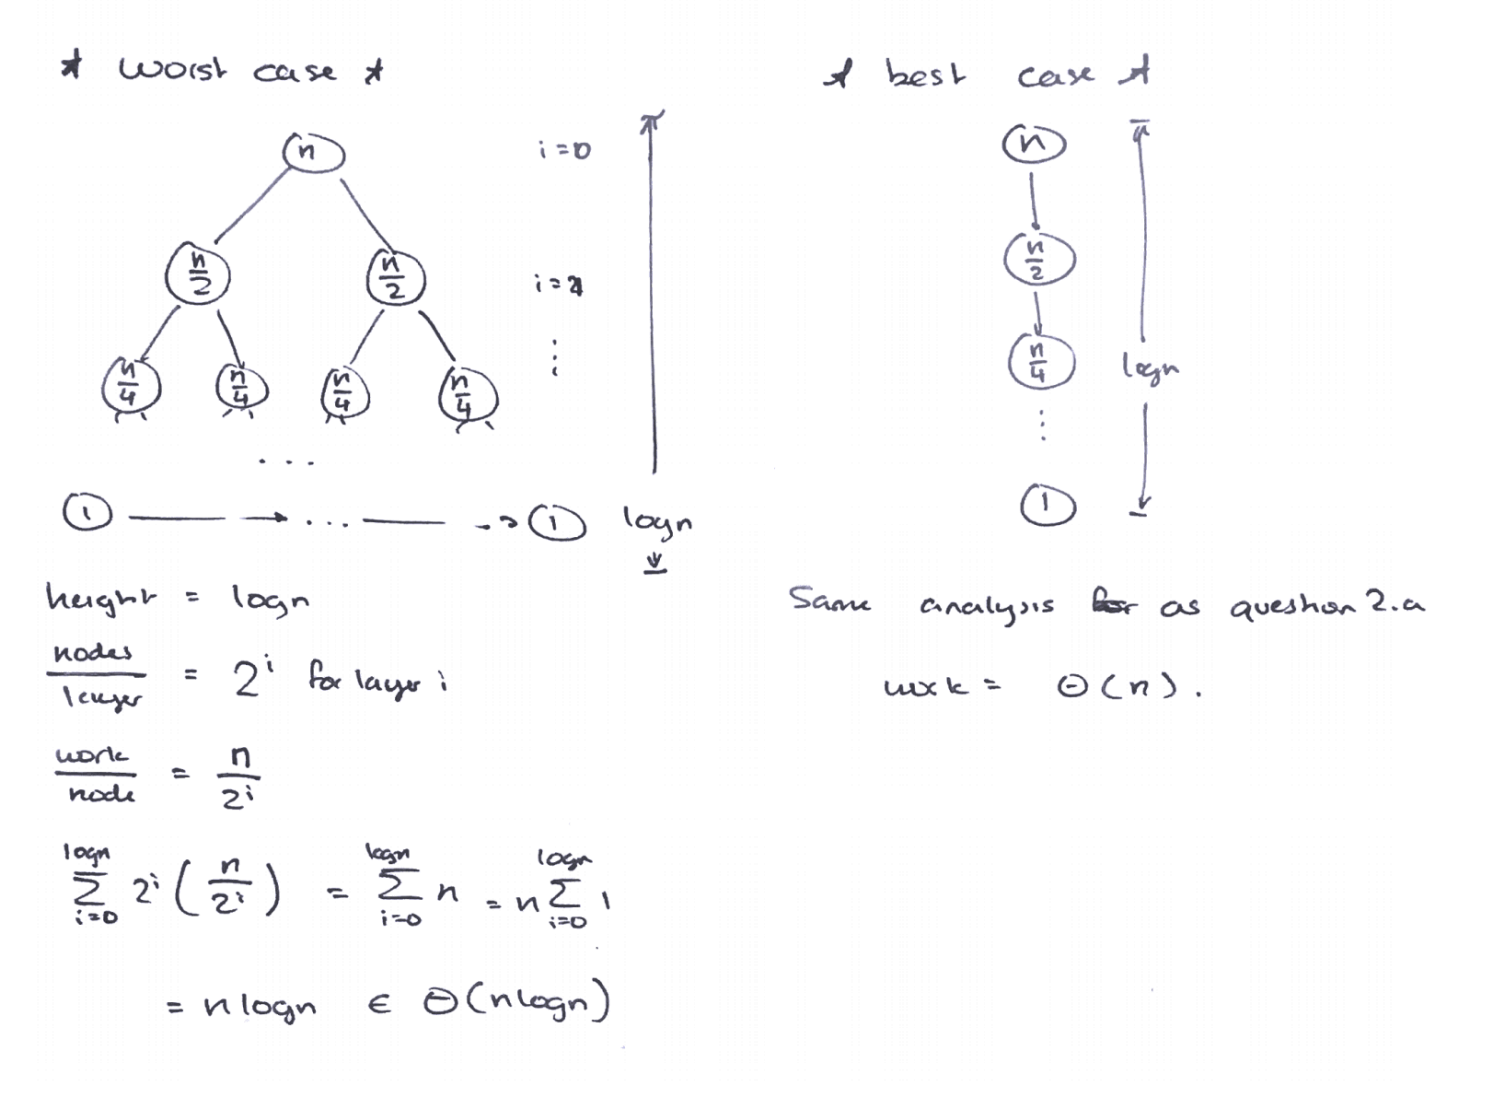 * worst case *
n
i=0
n/2 n/2
i=1
n/4 n/4 n/4 n/4
⋮
...
1 → ... → 1
logn
height = logn
nodes/layer = 2^i for layer i
work/node = n/2^i
∑_{i=0}^{logn} 2^i (n/2^i) = ∑_{i=0}^{logn} n = n ∑_{i=0}^{logn} 1
= nlogn ∈ Θ(nlogn)
* best case *
n
n/2
n/4
logn
⋮
1
Same analysis as question 2.a
work = Θ(n).